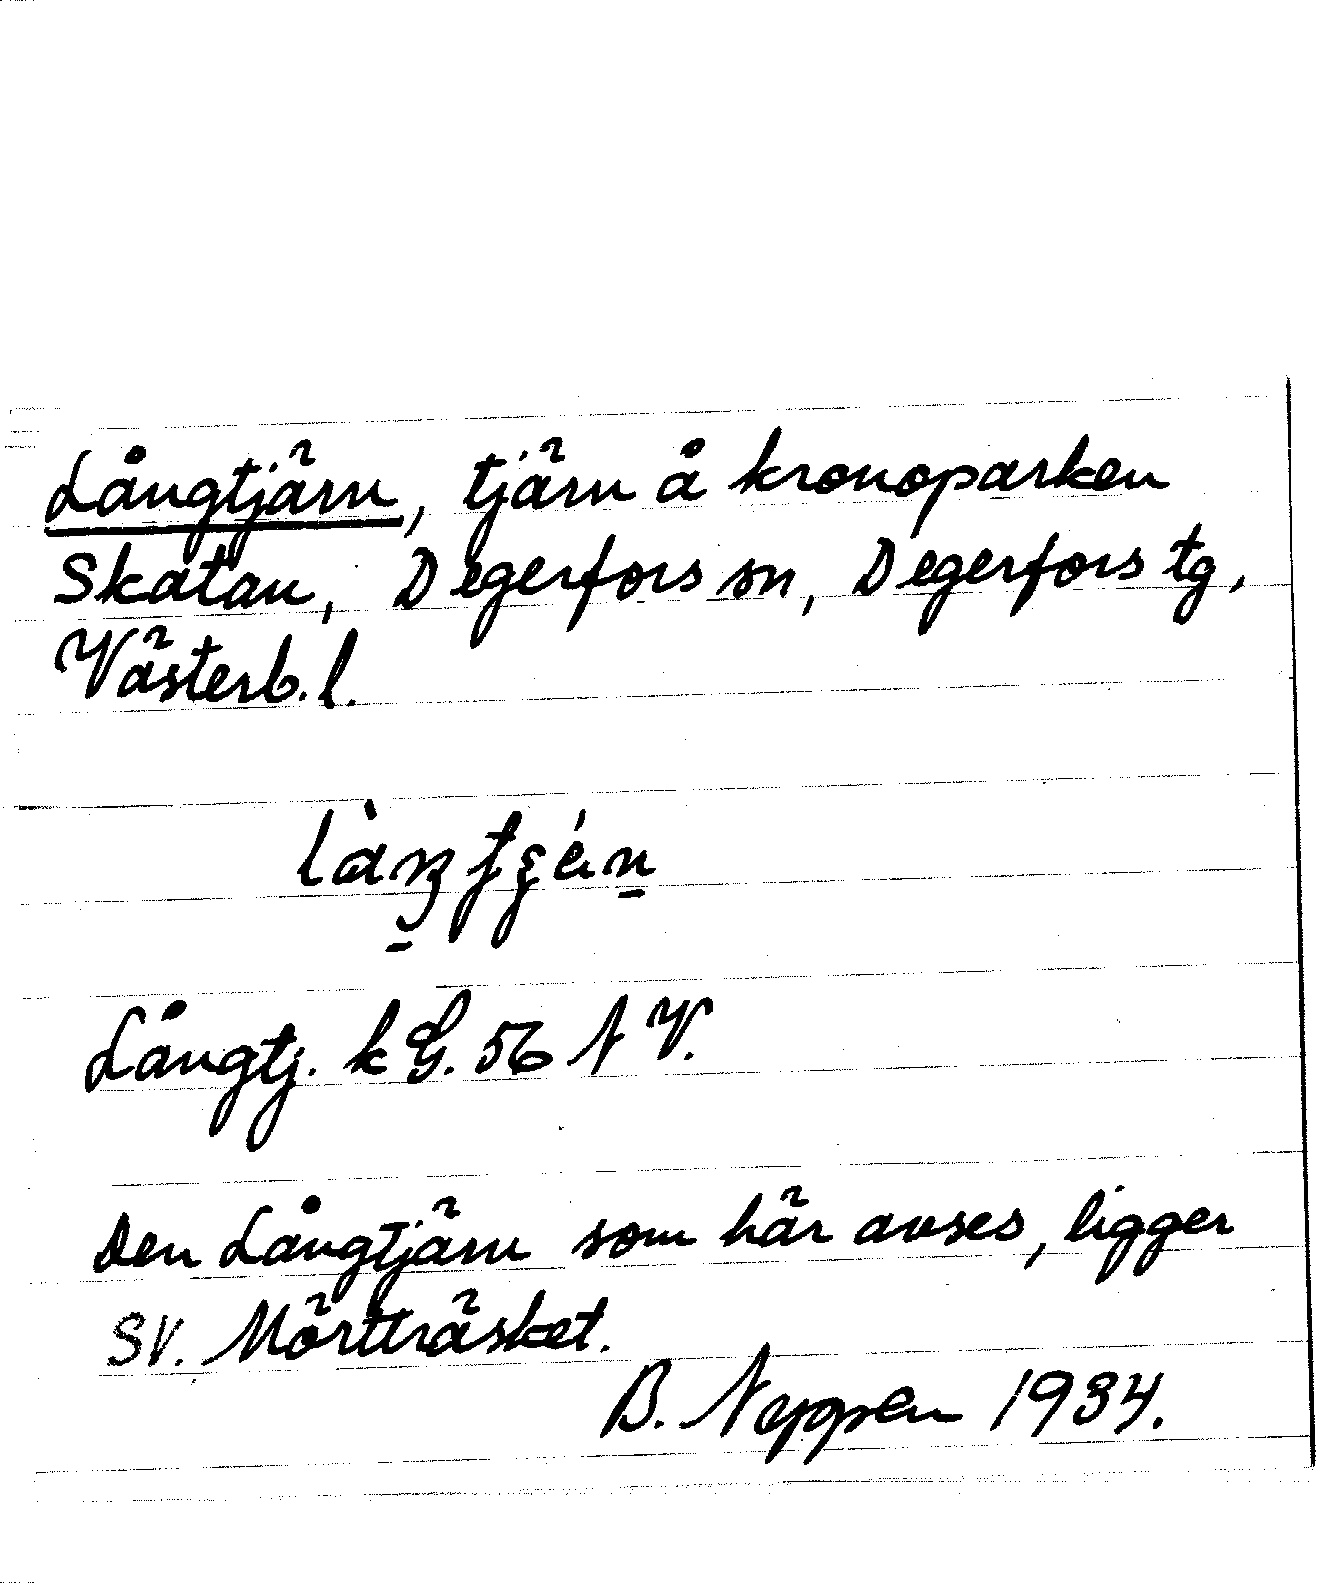 Långtjärn, tjärn å kronoparken
Skatan, Degerfors sn, Degerfors tg,
Västerb. l.
Långtj. k G. 56 N V.
Den Långtjärn som här avses, ligger
SV. Mörtträsket.
B. Neppen 1934.